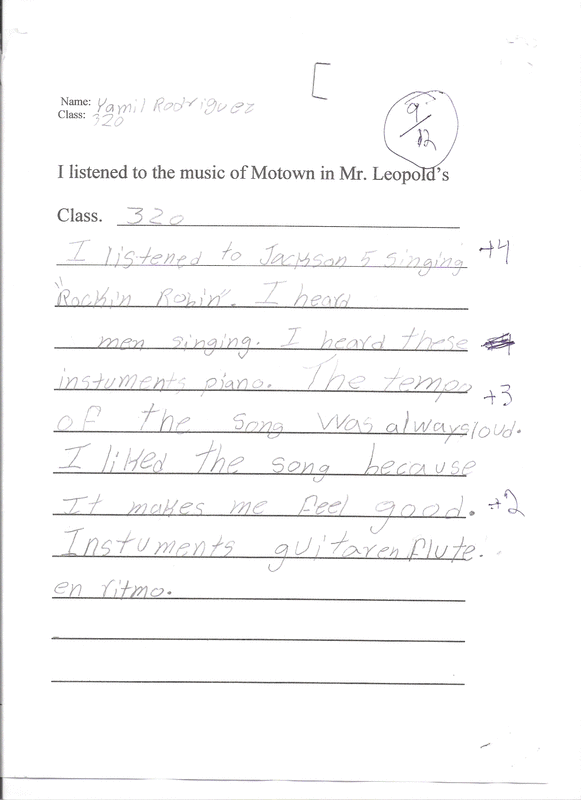 [
Name: Yamil Rodriguez
Class: 320
9/12
I listened to the music of Motown in Mr. Leopold's
Class. 320
I listened to Jackson 5 singing +4
"Rockin Robin". I heard
men singing. I heard these
instuments piano. The tempo +3
of the song was always loud.
I liked the song because
It makes me feel good. +2
Instuments guitar en flute.
en ritmo.